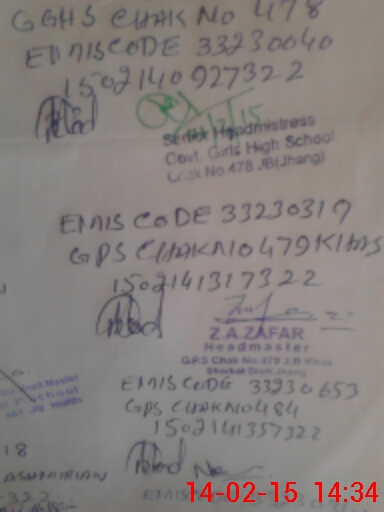 GGHS CHAK NO 478
EMIS CODE 33230040
150214092732 2
Senior Headmistress
Govt. Girls High School
Chak No.478 JB(Jhang)
EMIS CODE 33230319
GPS CHAK NO 479 KHAS
150214131732 2
Z.A.ZAFAR
Headmaster
G.P.S Chak No.479 J.B Khas
EMIS CODE 33230653
GPS CHAK NO 484
150214135732 2
18
322
EMIS CODE
14-02-15 14:34